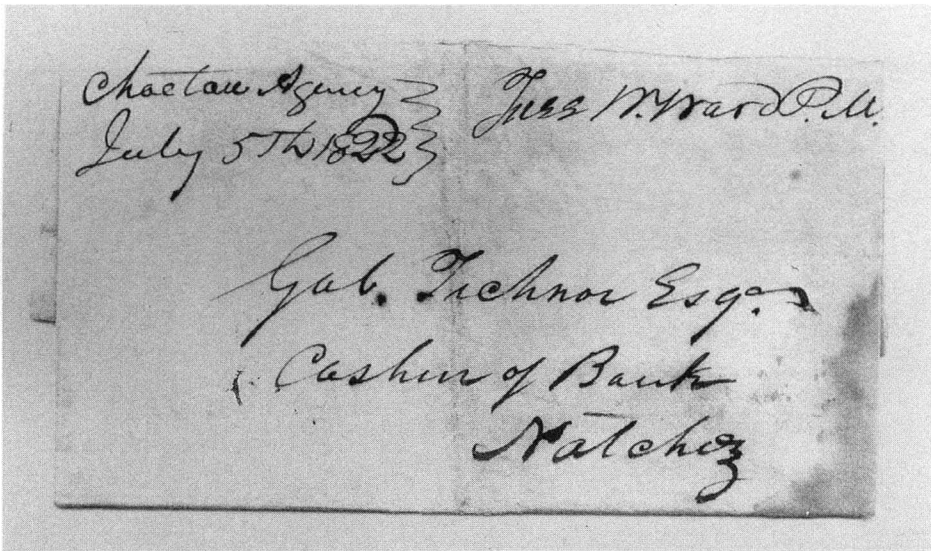 Choctaw Agency
July 5th 1822
Free W. Ward P.M.
Gab. Tichnor Esqr.
Cashier of Bank
Natchez